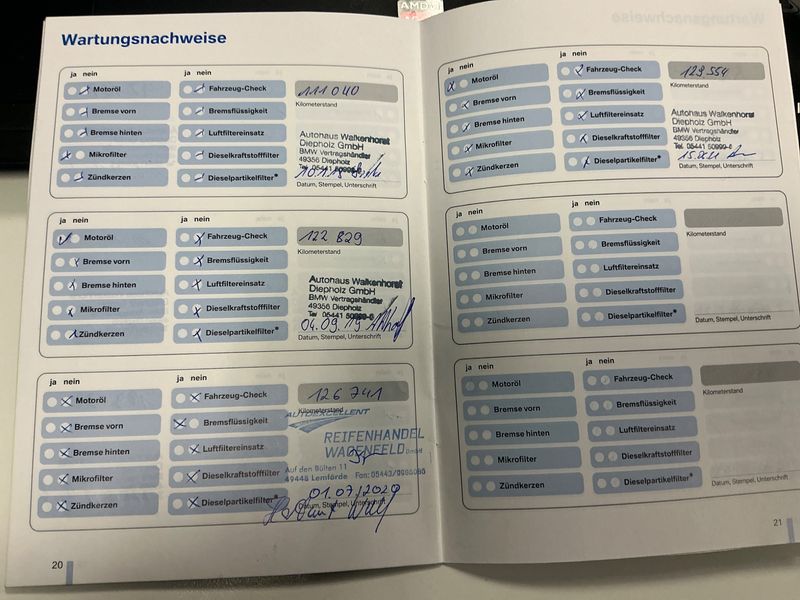 Wartungsnachweise
ja nein
ja nein
Motoröl
Fahrzeug-Check
111 040
Bremse vorn
Bremsflüssigkeit
Kilometerstand
Bremse hinten
Luftfiltereinsatz
Mikrofilter
Dieselkraftstofffilter
Zündkerzen
Dieselpartikelfilter*
Autohaus Walkenhorst
Diepholz GmbH
BMW Vertragshändler
49356 Diepholz
Datum, Stempel, Unterschrift
ja nein
ja nein
Motoröl
Fahrzeug-Check
122 829
Bremse vorn
Bremsflüssigkeit
Kilometerstand
Bremse hinten
Luftfiltereinsatz
Mikrofilter
Dieselkraftstofffilter
Zündkerzen
Dieselpartikelfilter*
Autohaus Walkenhorst
Diepholz GmbH
BMW Vertragshändler
49356 Diepholz
Tel 05441 50999-6
04.09.19
Datum, Stempel, Unterschrift
ja nein
ja nein
Motoröl
Fahrzeug-Check
126 741
Bremse vorn
Bremsflüssigkeit
Kilometerstand
Bremse hinten
Luftfiltereinsatz
Mikrofilter
Dieselkraftstofffilter
Zündkerzen
Dieselpartikelfilter*
AUTOEXCELLENT
REIFENHANDEL
WAGENFELD GmbH
Auf den Bülten 11
49448 Lemförde
01.07/2020
Datum, Stempel, Unterschrift
20
AMD
ja nein
ja nein
Motoröl
Fahrzeug-Check
129 554
Bremse vorn
Bremsflüssigkeit
Kilometerstand
Bremse hinten
Luftfiltereinsatz
Mikrofilter
Dieselkraftstofffilter
Zündkerzen
Dieselpartikelfilter*
Autohaus Walkenhorst
Diepholz GmbH
BMW Vertragshändler
49356 Diepholz
Tel 05441 50999-6
Datum, Stempel, Unterschrift
ja nein
ja nein
Motoröl
Fahrzeug-Check
Bremse vorn
Bremsflüssigkeit
Kilometerstand
Bremse hinten
Luftfiltereinsatz
Mikrofilter
Dieselkraftstofffilter
Zündkerzen
Dieselpartikelfilter*
Datum, Stempel, Unterschrift
ja nein
ja nein
Motoröl
Fahrzeug-Check
Bremse vorn
Bremsflüssigkeit
Kilometerstand
Bremse hinten
Luftfiltereinsatz
Mikrofilter
Dieselkraftstofffilter
Zündkerzen
Dieselpartikelfilter*
Datum, Stempel, Unterschrift
21